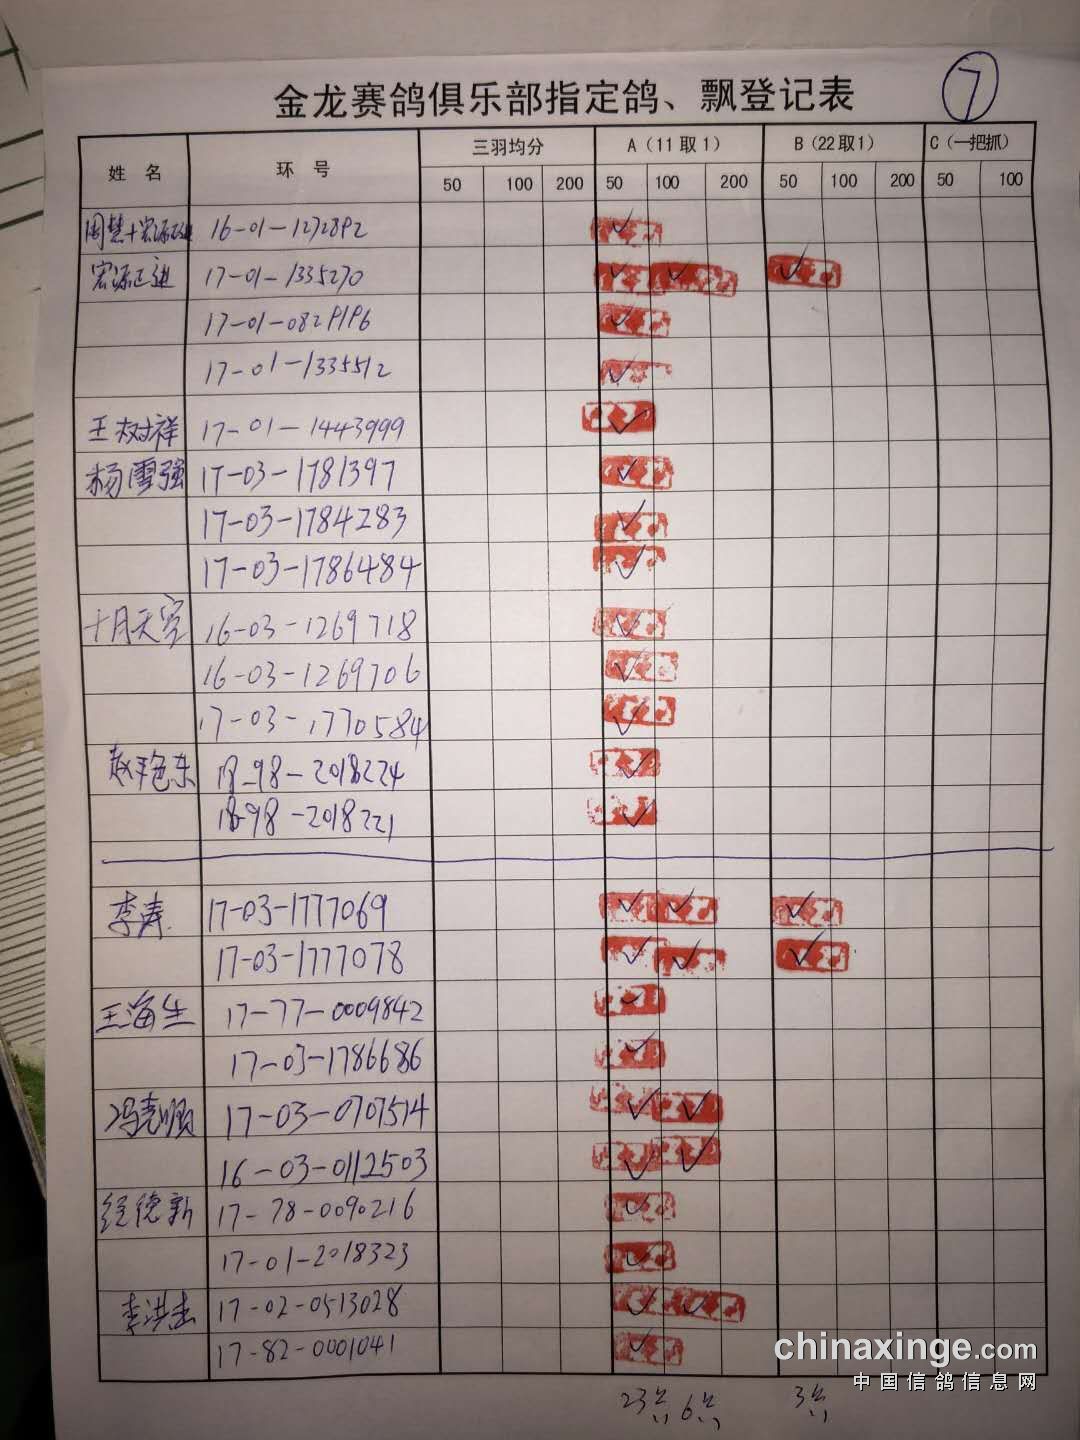 金龙赛鸽俱乐部指定鸽、飘登记表 7
姓名 环号 三羽均分 A（11取1） B（22取1） C（一把抓）
50 100 200 50 100 200 50 100 200 50 100
周慧+宏源正迪 16-01-1272892 ✓
宏源正迪 17-01-1335270 ✓ ✓ ✓
17-01-0829196 ✓
17-01-1335512 ✓
王树祥 17-01-1443999 ✓
杨雪强 17-03-1781397 ✓
17-03-1784283 ✓
17-03-1786484 ✓
十月天空 16-03-1269718 ✓
16-03-1269706 ✓
17-03-1770584 ✓
赵艳东 18-98-2018224 ✓
18-98-2018221 ✓
李涛 17-03-1777069 ✓ ✓ ✓
17-03-1777078 ✓ ✓ ✓
王海生 17-77-0009842 ✓
17-03-1786686 ✓
冯志顺 17-03-0707514 ✓ ✓
16-03-0112503 ✓ ✓
德新 17-78-0090216 ✓
17-01-2018323 ✓
李洪志 17-02-0513028 ✓ ✓
17-82-0001041 ✓
23 6 3
chinaxinge.com
中国信鸽信息网